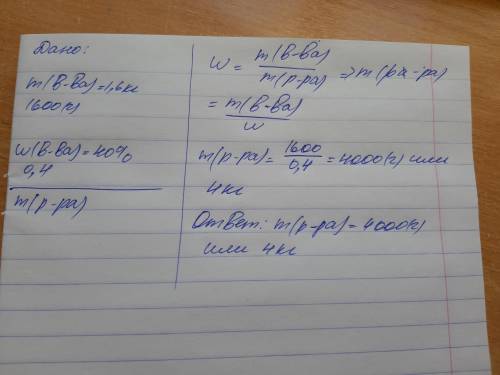 Дано:
m(в-ва)=1,6кг
1600(г)
w(в-ва)=40%
0,4
m(р-ра)
w = m(в-ва) / m(р-ра) => m(ра-ра)
= m(в-ва) / w
m(р-ра)= 1600 / 0,4 = 4000(г) или
4кг
Ответ: m(р-ра)=4000(г)
или 4кг